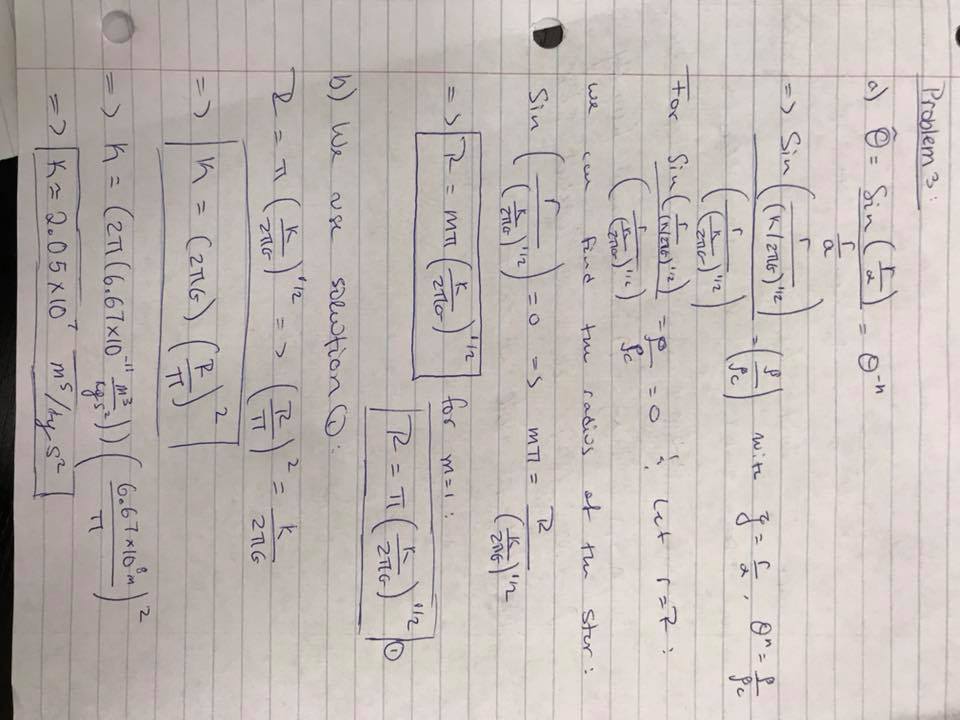 Problem 3:
a) θ̂ = Sin(r/α) / (r/α) = θ^-n
=> Sin(r/(K/2πG)^1/2) / (r/(K/2πG)^1/2) = (ρ/ρc) with ξ = r/α, θ^n = ρ/ρc
For Sin(r/(K/2πG)^1/2) / (r/(K/2πG)^1/2) = ρ/ρc = 0 & let r = R:
we can find the radius of the star:
Sin(r/(K/2πG)^1/2) = 0 => mπ = R/(K/2πG)^1/2
=> R = mπ(K/2πG)^1/2 for m=1:
R = π(K/2πG)^1/2 ①
b) We use solution ①:
R = π(K/2πG)^1/2 => (R/π)^2 = K/2πG
=> K = (2πG)(R/π)^2
=> K = (2π(6.67×10^-11 m^3/kg s^2))(6.67×10^8 m/π)^2
=> K = 2.05×10^7 m^5/kg s^2